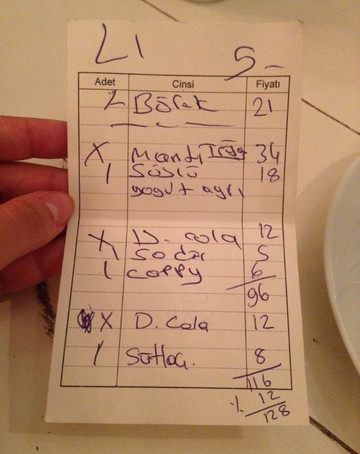 L1 5-
Adet Cinsi Fiyatı
2 Börek 21
X Mantı 34
1 Süslü 18
yogurt ayrı
X D. cola 12
1 Soda 5
1 cappy 6
96
X D. Cola 12
1 Sütlaç 8
116
% 12
128